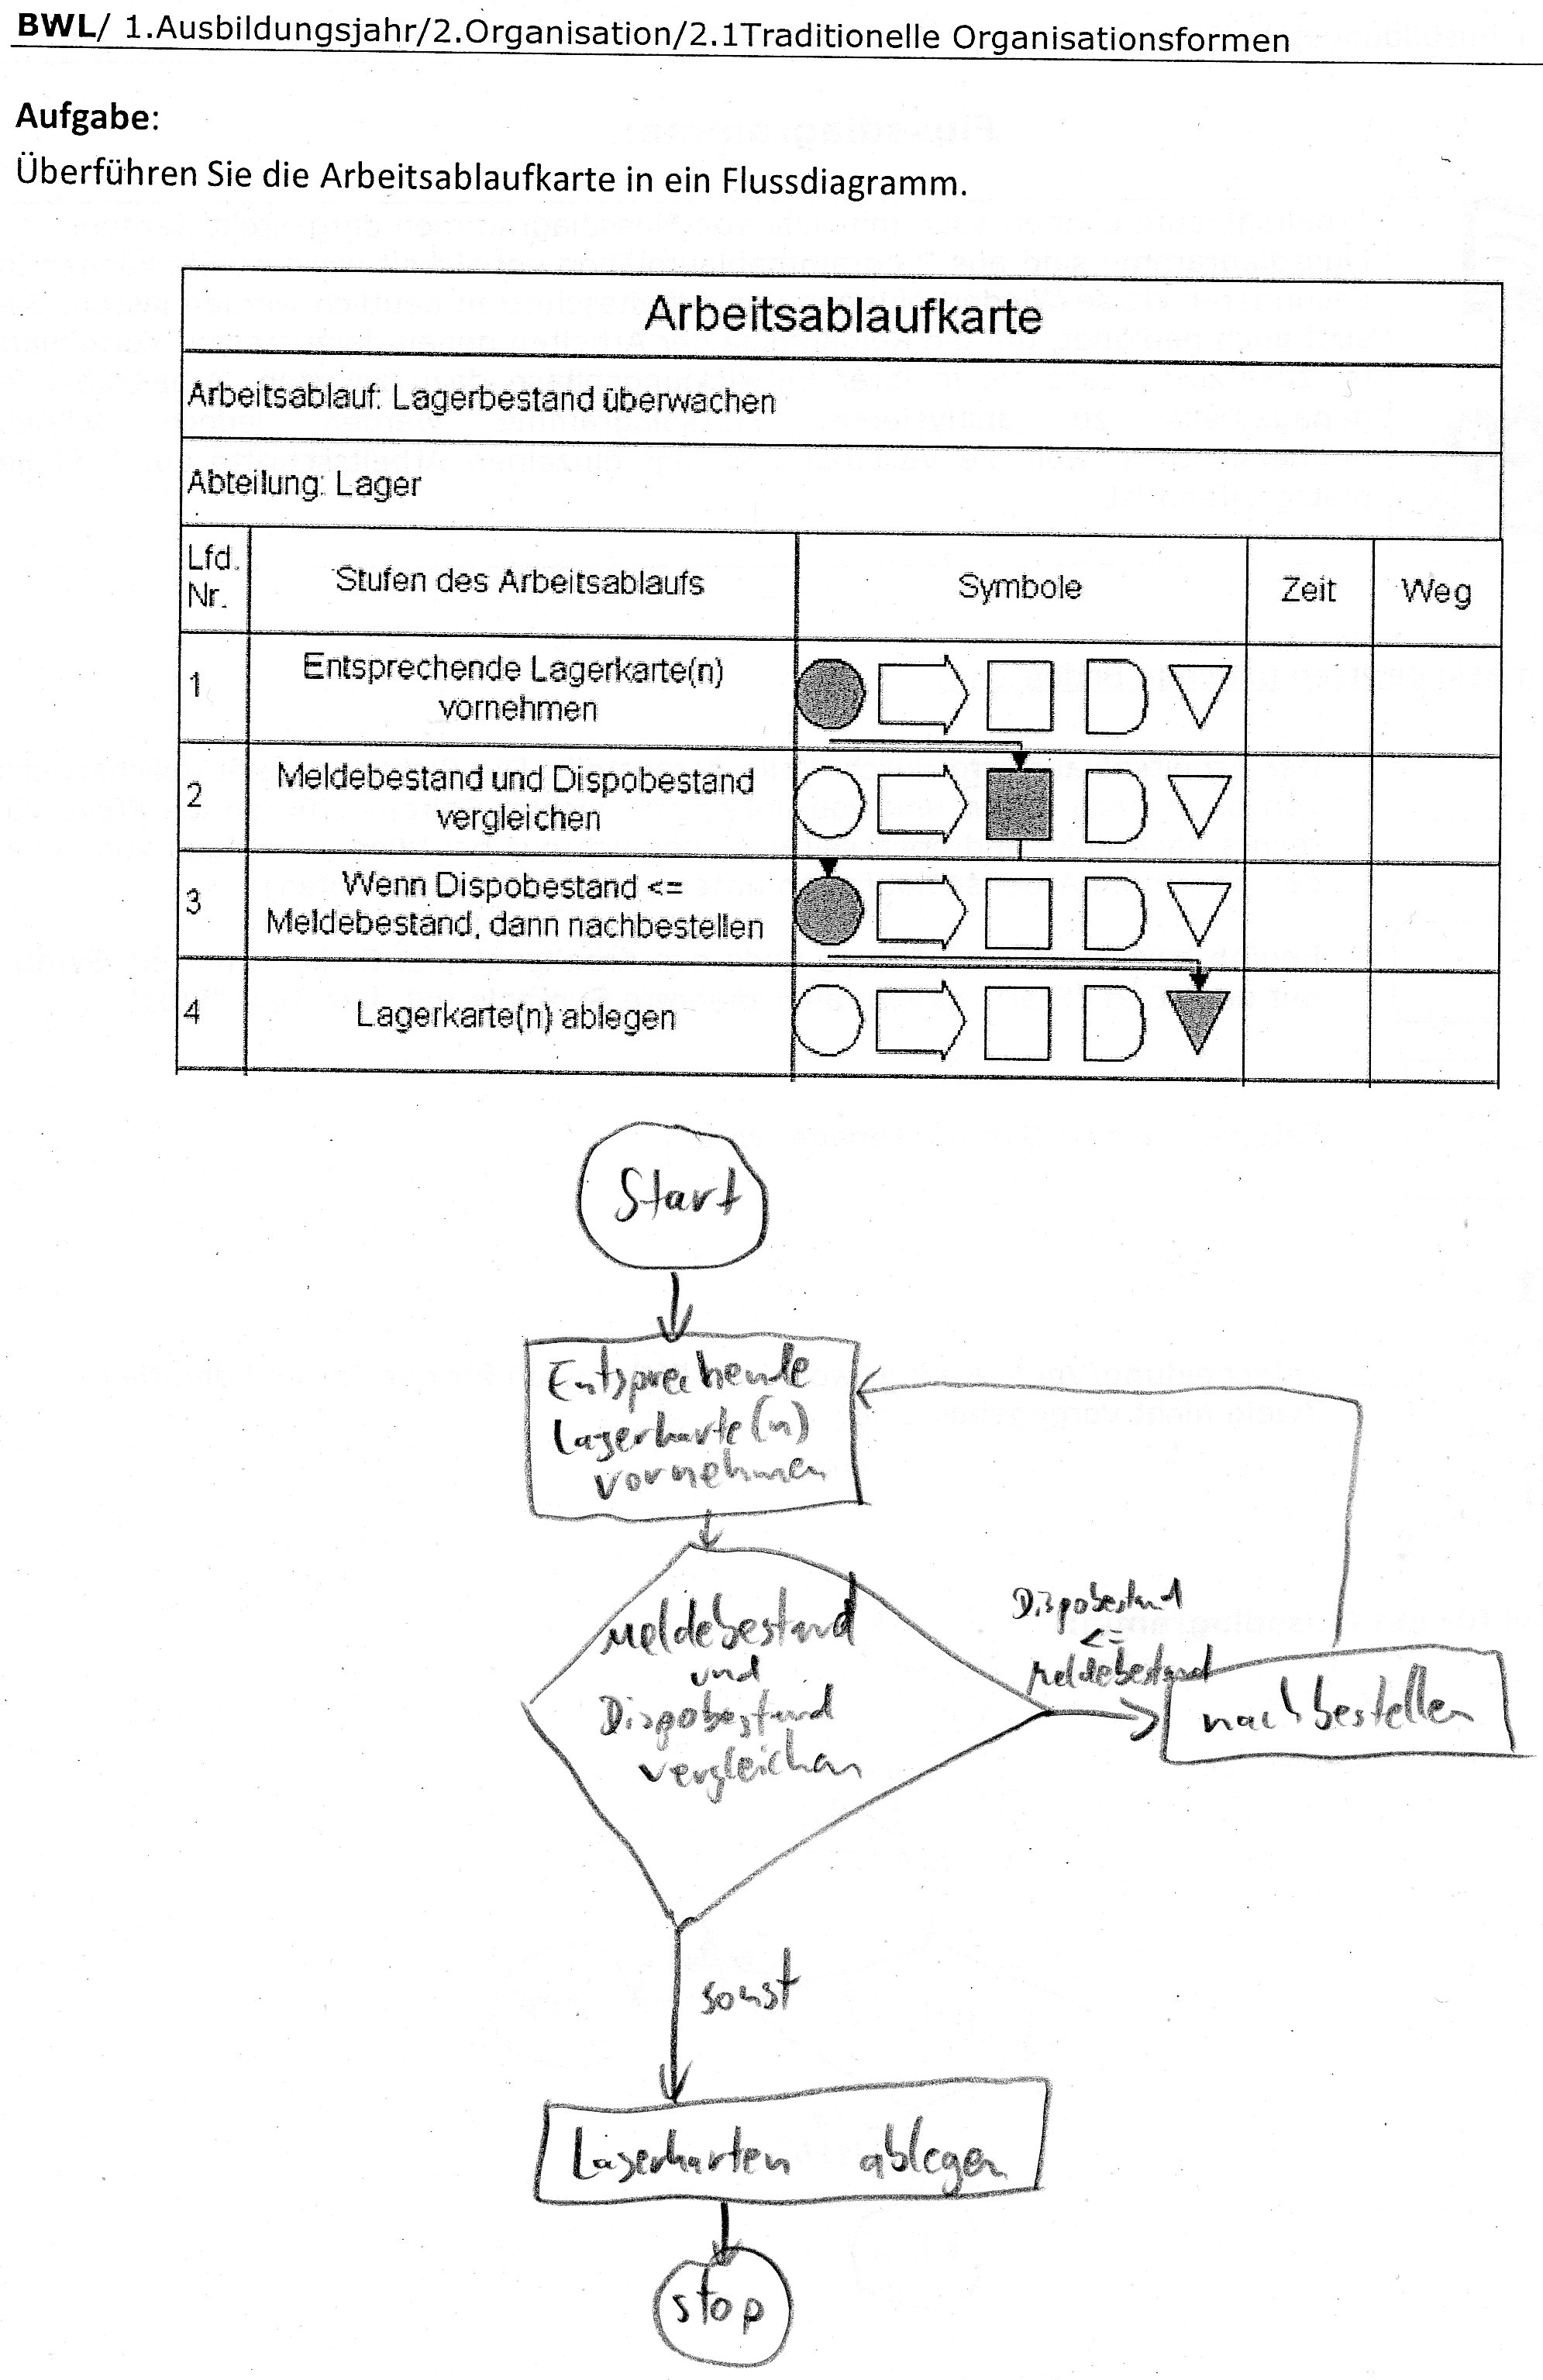 BWL/ 1.Ausbildungsjahr/2.Organisation/2.1Traditionelle Organisationsformen
Aufgabe:
Überführen Sie die Arbeitsablaufkarte in ein Flussdiagramm.
Arbeitsablaufkarte
Arbeitsablauf: Lagerbestand überwachen
Abteilung: Lager
Lfd.
Nr.
Stufen des Arbeitsablaufs
Symbole
Zeit
Weg
1
Entsprechende Lagerkarte(n)
vornehmen
2
Meldebestand und Dispobestand
vergleichen
3
Wenn Dispobestand <=
Meldebestand, dann nachbestellen
4
Lagerkarte(n) ablegen
Start
Entsprechende
Lagerkarte(n)
vornehmen
Meldebestand
und
Dispobestand
vergleichen
Dispobestand
<=
Meldebestand
nachbestellen
sonst
Lagerkarten ablegen
stop